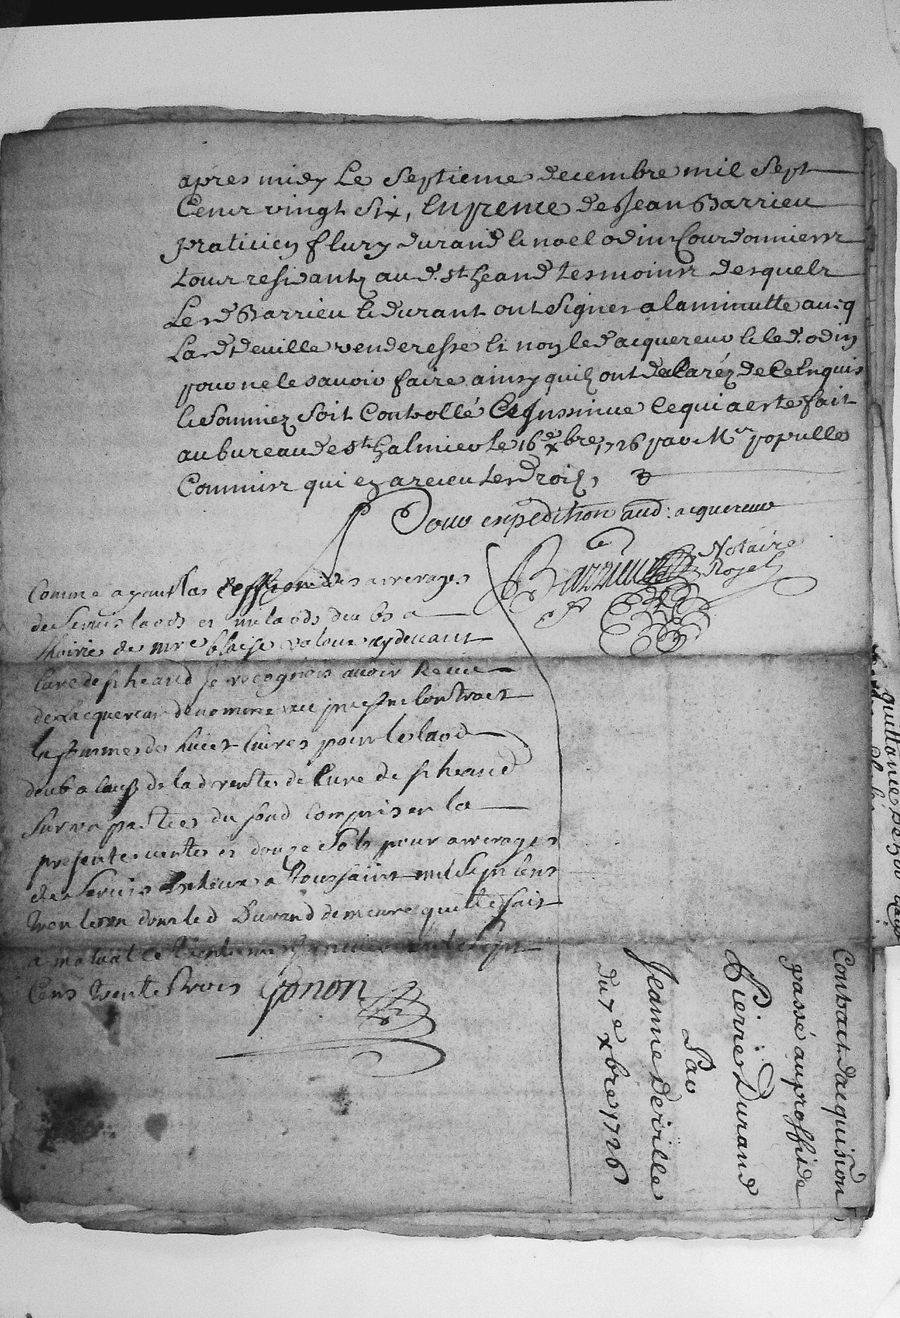 apres midy Le Septieme decembre mil Sept
Cent vingt Six, En prence de Jean Barrieu
praticien flury durand & noel odin Courdonnier
tour residantz aud. st heand tesmoins desquels
Les d Barrieu & durant ont Signer a la minutte aucq
lad. deville venderesse & non led acquereur & led. odin
pour ne le savoir faire ainsy quilz ont declaréz de Ce Enquis
& Sommez Soit Controllé & Jnssinue Ce qui a este fait
au bureau de st Galmier le 16e xbre 1726 par Mr populle
Commis qui en a receu les droitz
Pour expedition aud: acquereur
Barrieu
Notaire
Royel
Comme ayant les des arrerages
de servis laods et milaods deubs a
hoirie de mre blaise valour cy devant
Cure de st heand je recognois avoir Receu
de lacquereur denomme au present Contract
la somme de huict livres pour le laod
deub a cause de la d rentes de Cure de st heand
Sur un parties du fond Compris en la
presente ventes et douze Sols pour arrerages
de Servis Escheus a Toussaint mil Sept Cens
dont led Durand demeure quitte fait
Cens trente trois Gonon
Contract dacquision
passé au proffit de
Pierre Durand
Par
Jeanne Deville
du 7e xbre 1726
quittance de